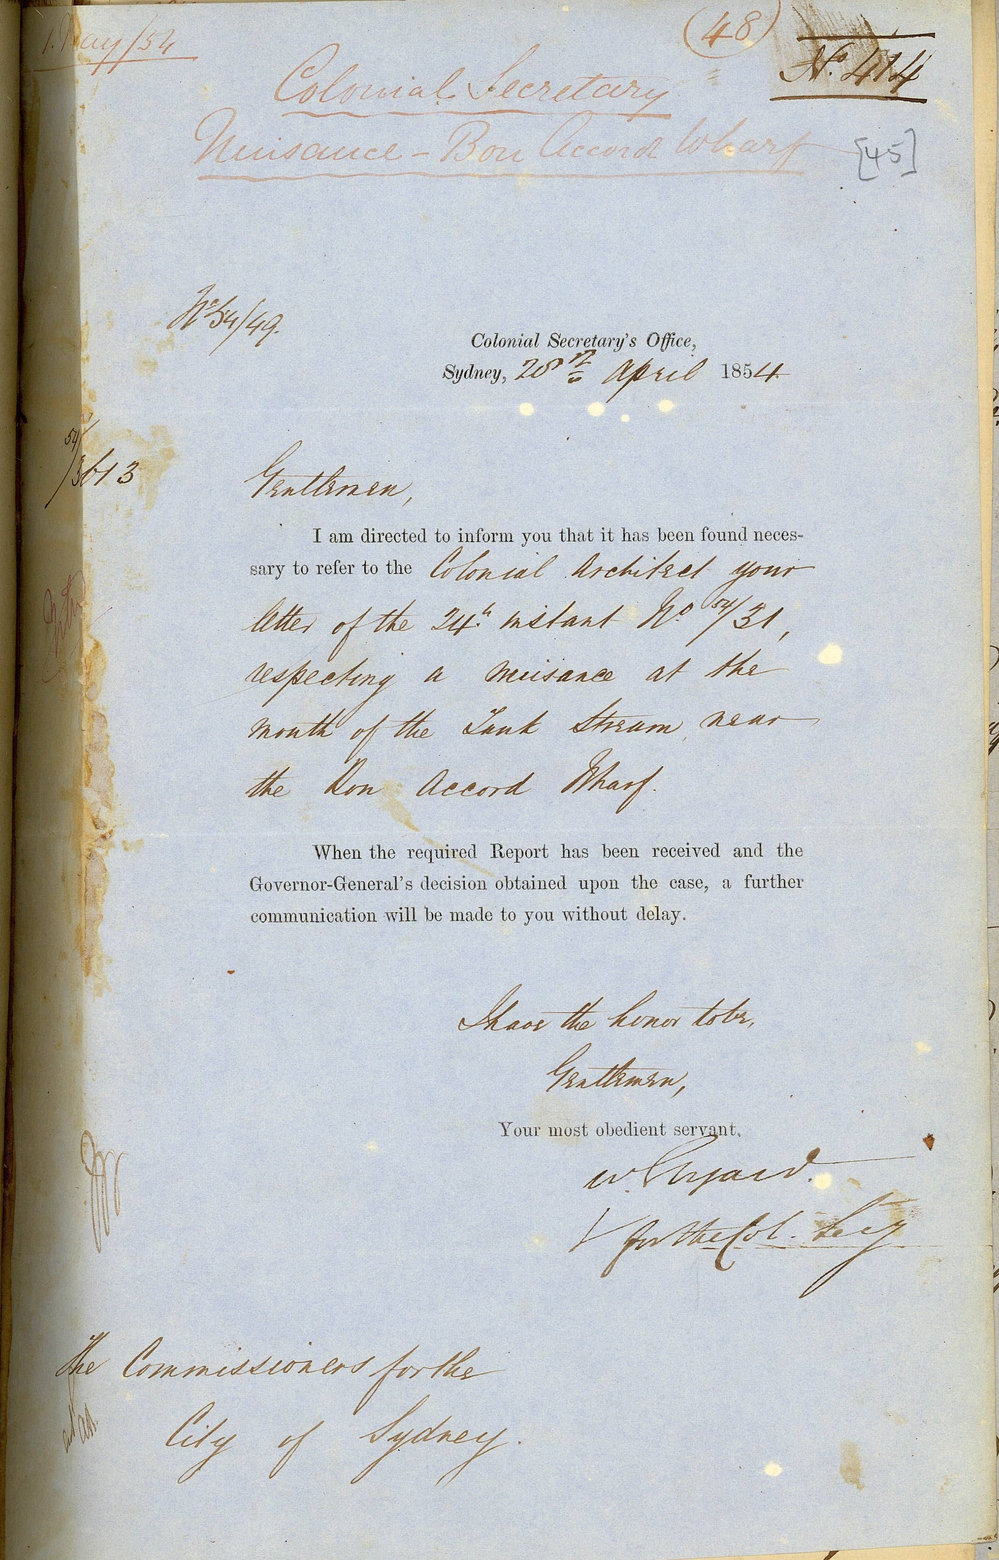 1. May/54
(48)
No. 414
Colonial Secretary
Nuisance - Bon Accord Wharf
[45]
No 54/49.
Colonial Secretary's Office,
Sydney, 28th April 1854
54/3613
Gentlemen,
I am directed to inform you that it has been found neces-
sary to refer to the Colonial Architect your
letter of the 24th instant No 54/31,
respecting a nuisance at the
mouth of the Tank Stream near
the Bon Accord Wharf.
When the required Report has been received and the
Governor-General's decision obtained upon the case, a further
communication will be made to you without delay.
I have the honor to be,
Gentlemen,
Your most obedient servant,
W. Elyard.
for the Col. Secy
The Commissioners for the
City of Sydney.